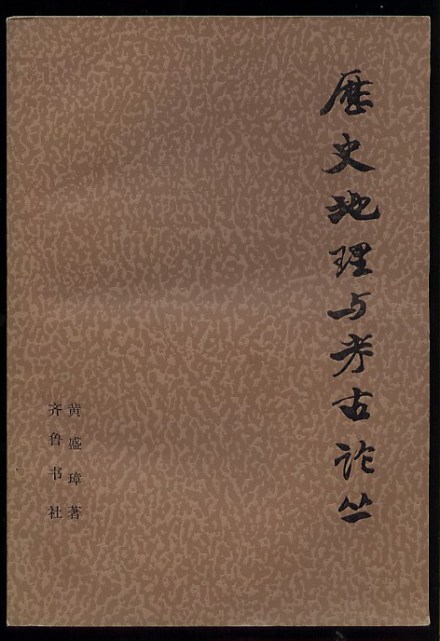 历史地理与考古论丛
黄盛璋著
齐鲁书社